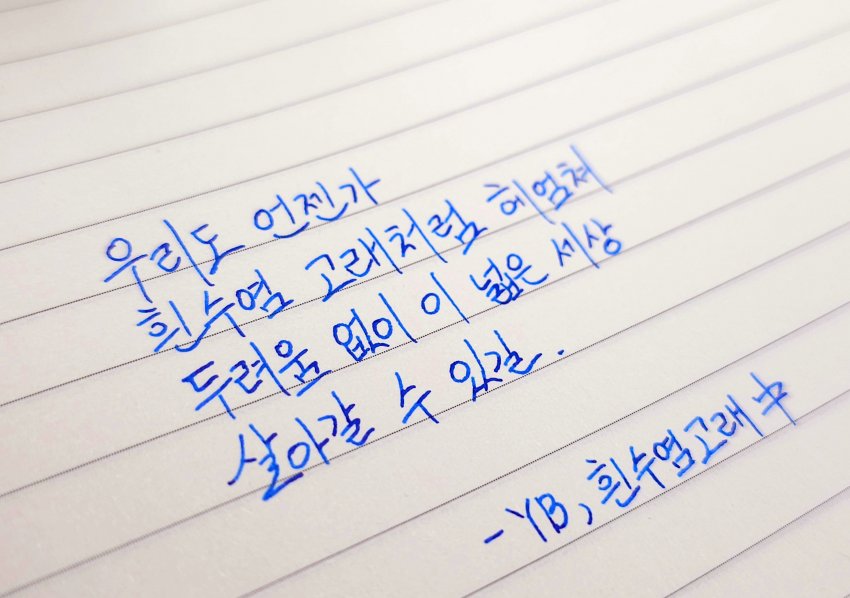 우리도 언젠가
흰수염 고래처럼 헤엄쳐
두려움 없이 이 넓은 세상
살아갈 수 있길.
-YB, 흰수염고래 中